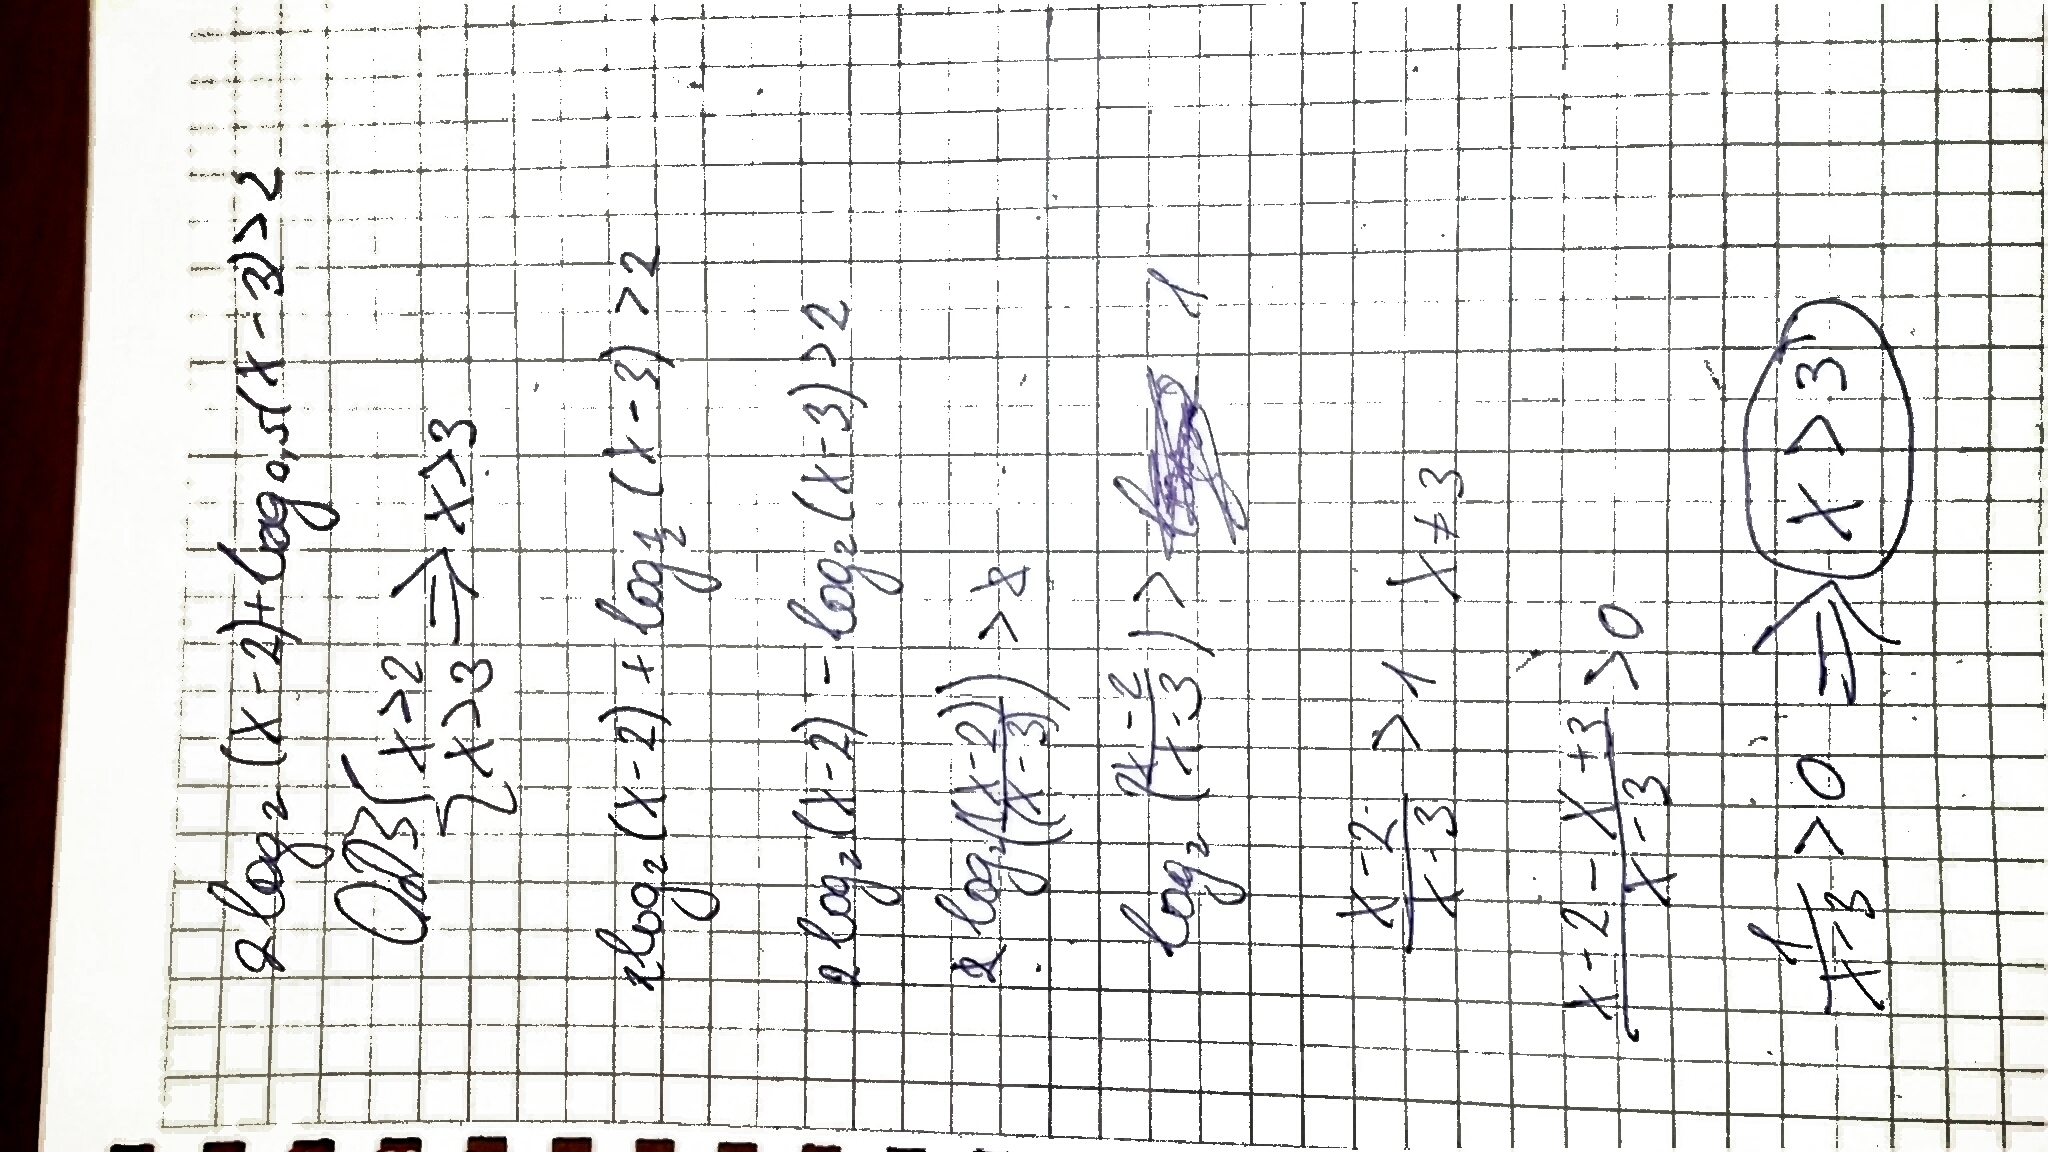 2 log₂ (x - 2) + log₀,₅ (x - 3) > 2
ОДЗ { x > 2
x > 3 ⇒ x > 3
2 log₂ (x - 2) + log½ (x - 3) > 2
2 log₂ (x - 2) - log₂ (x - 3) > 2
2 log₂ ((x - 2)/(x - 3)) > 2
log₂ ((x - 2)/(x - 3)) > 1
(x - 2)/(x - 3) > 1 x ≠ 3
(x - 2 - x + 3)/(x - 3) > 0
1/(x - 3) > 0 ⇒ x > 3